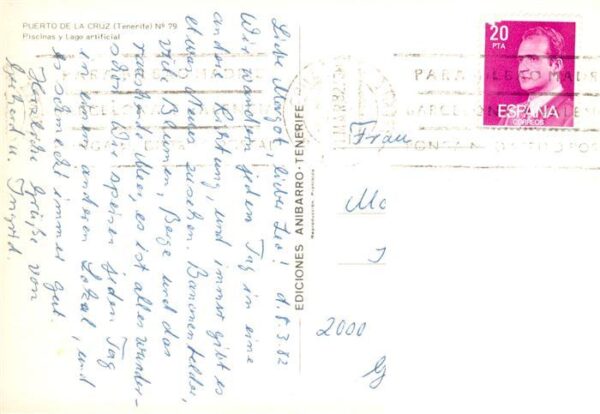 PUERTO DE LA CRUZ (Tenerife) Nº 79
Piscinas y Lago artificial
Liebe Margot, liebe Lea! d. 8.3.82
Wir wandern jeden Tag in eine
andere Richtung, und immer gibt es
etwas Neues zu sehen. Bananenfelder,
viele Blumen, Berge und das
Meer, es ist alles wunder-
schön. Wir speisen jeden Tag
in einem anderen Lokal, und
es schmeckt immer gut.
Herzliche Grüße von
Gerhard u. Ingrid.
EDICIONES ANIBARRO - TENERIFE
Reproducción Prohibida
20
PTA
ESPAÑA
CORREOS
PARA MADRID
BARCELONA
PONGA
Frau
2000